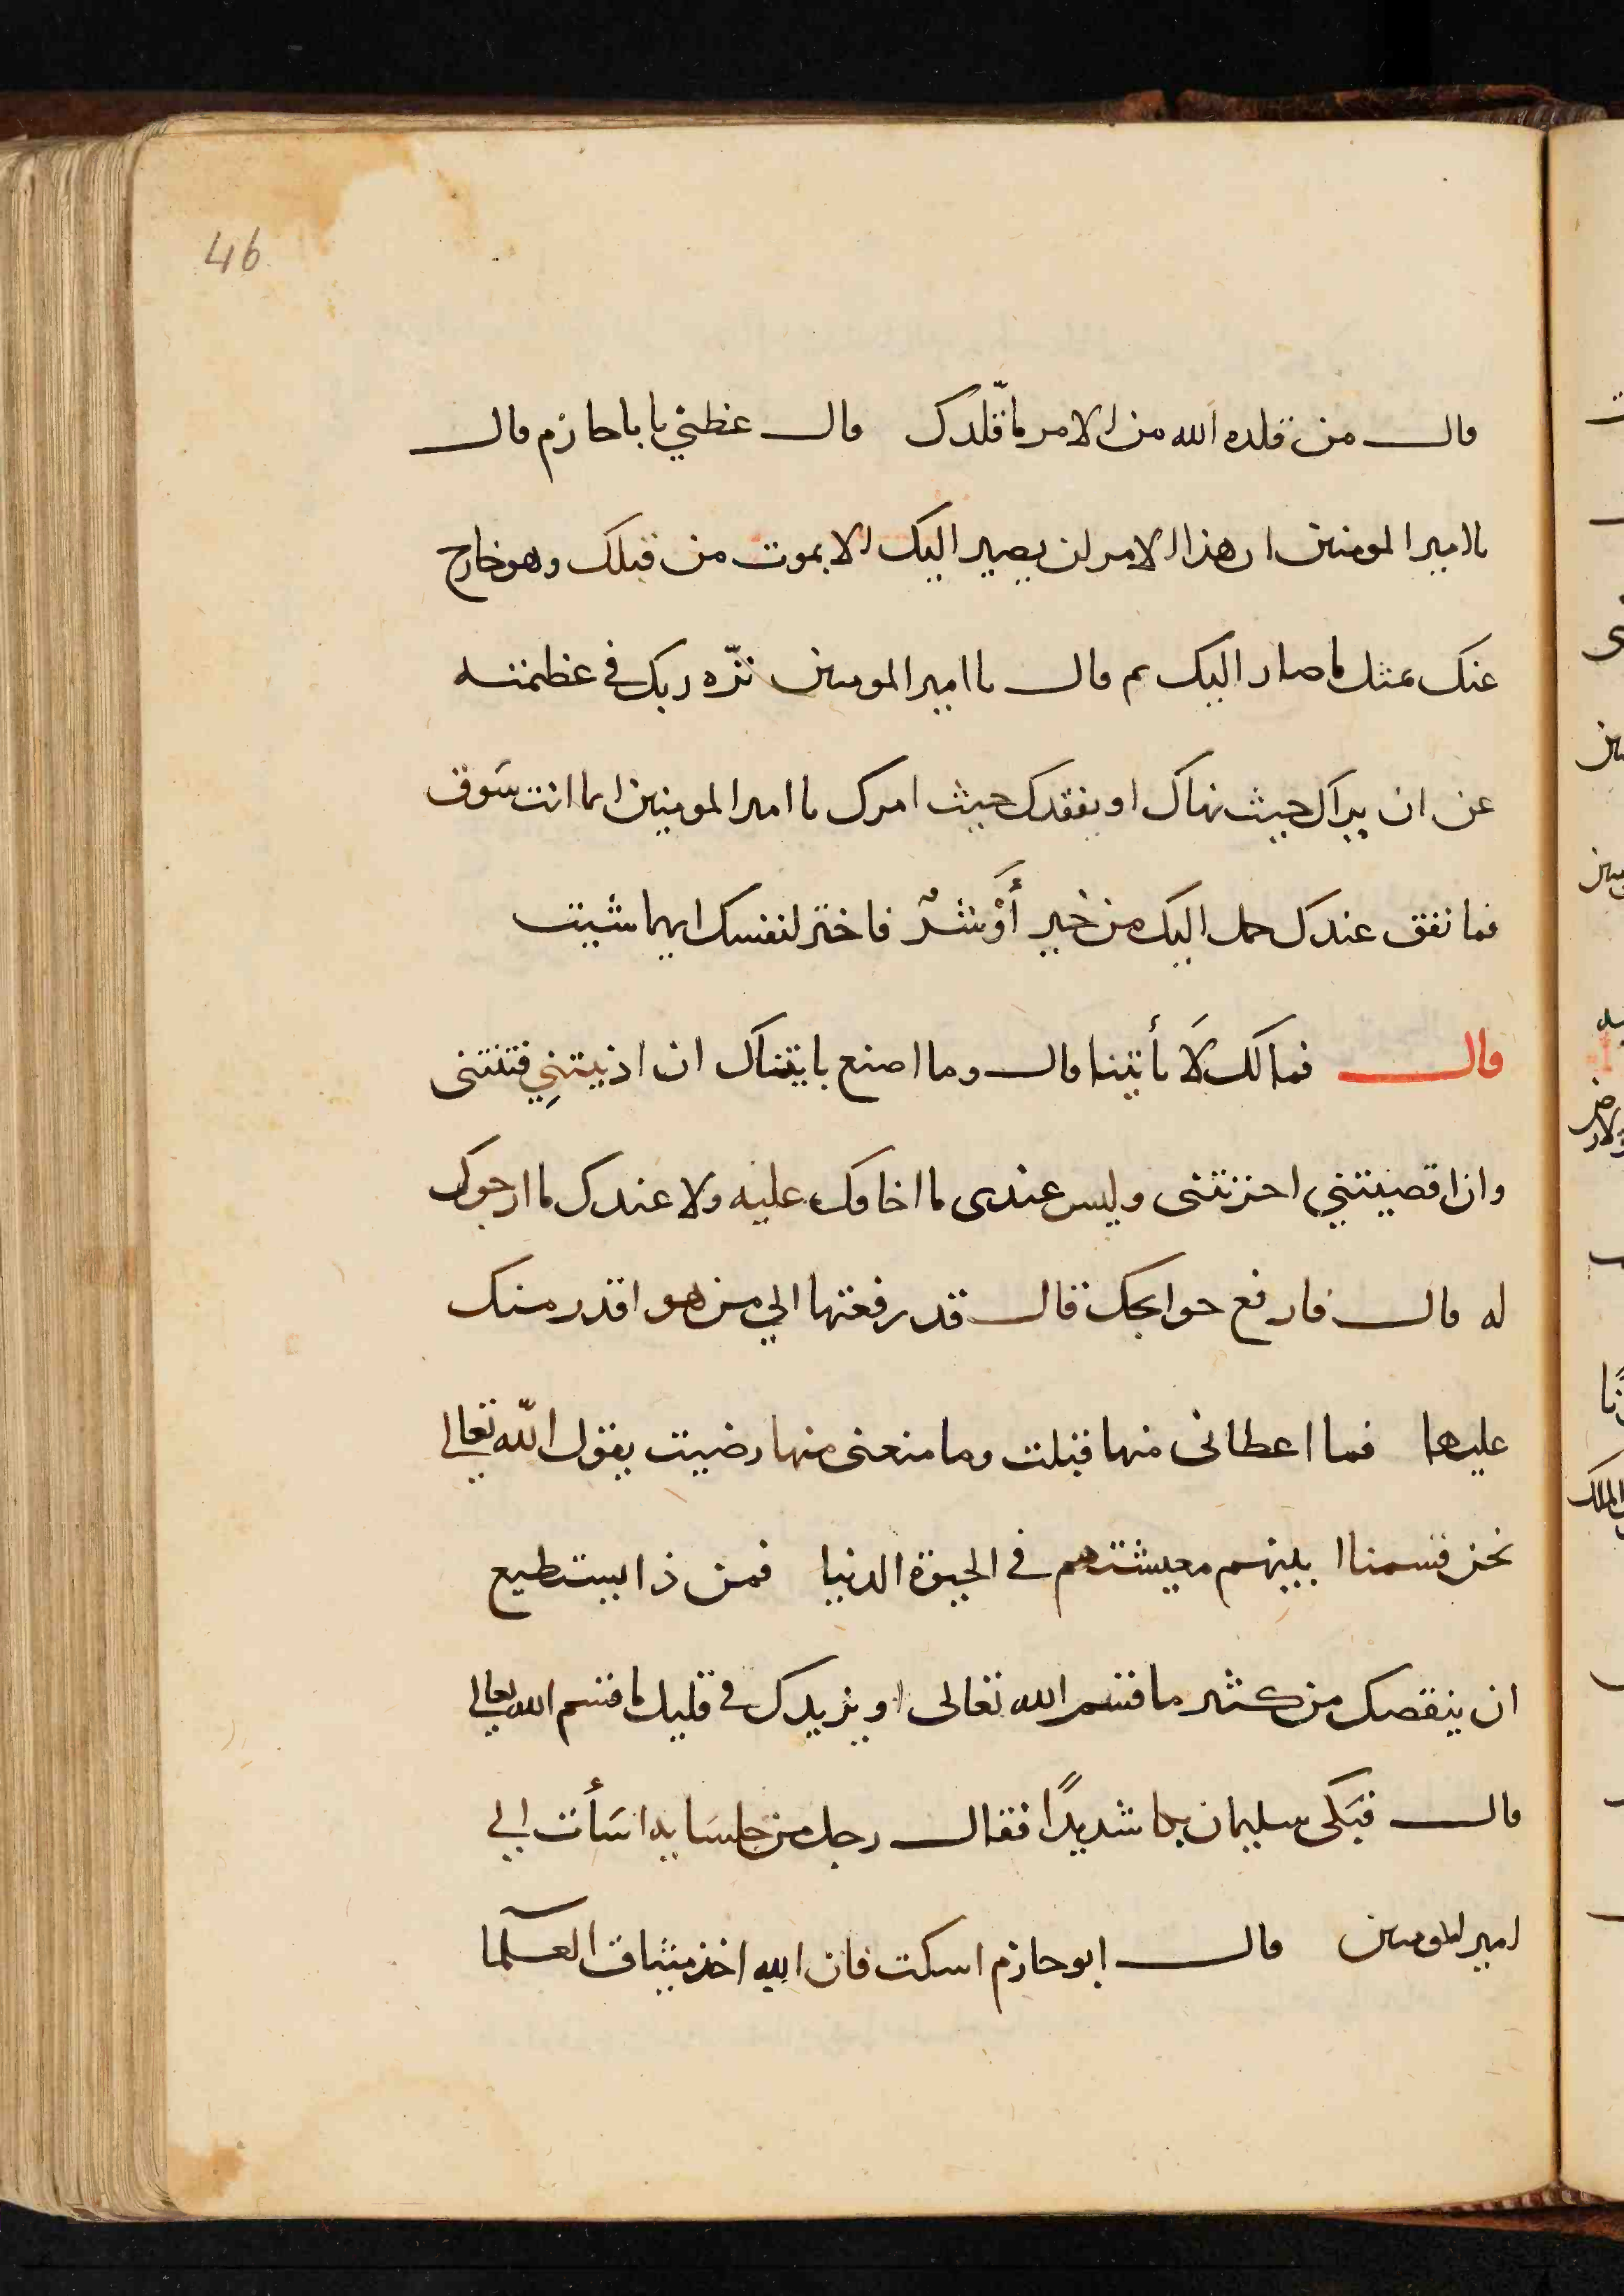 46
قال من قلده الله من الامر ما قلّدك قال عظني يا باحازم قال
يا امير المومنين ان هذا الامر لن يصير اليك الا بموت من قبلك وهو خارج
عنك بمثل ما صار اليك ثم قال يا امير المومنين نزّه ربك في عظمته
عن ان يراك حيث نهاك او يفقدك حيث امرك يا امير المومنين انما انت سَوق
فما نفق عندك حمل اليك من خير أَوْ شرٍّ فاختر لنفسك ايهما شيت
قال فمالك لَا تأتينا قال وما اصنع باتيناك ان اذنيتنِي فتنتنى
وان اقصيتني احزنتنى وليس عندى ما اخافك عليه ولا عندك ما ارجوك
له قال فارفع حوايجك قال قد رفعتها الي من هو اقدر منك
عليها فما اعطانى منها قبلت وما منعنى منها رضيت يقول الله تعالي
نحن قسمناا بينهم معيشتهم في الحيوة الدنيا فمن ذا يستطيع
ان ينقصك من كثير ما قسم الله تعالى او يزيدك في قليل ما قسم الله تعالي
قال فبَكى سليمان بكا شديدًا فقال رجل من جلسَايه اسَأت الي
امير المومنين قال ابو حازم اسكت فان الله اخذ ميثاق العلمآ